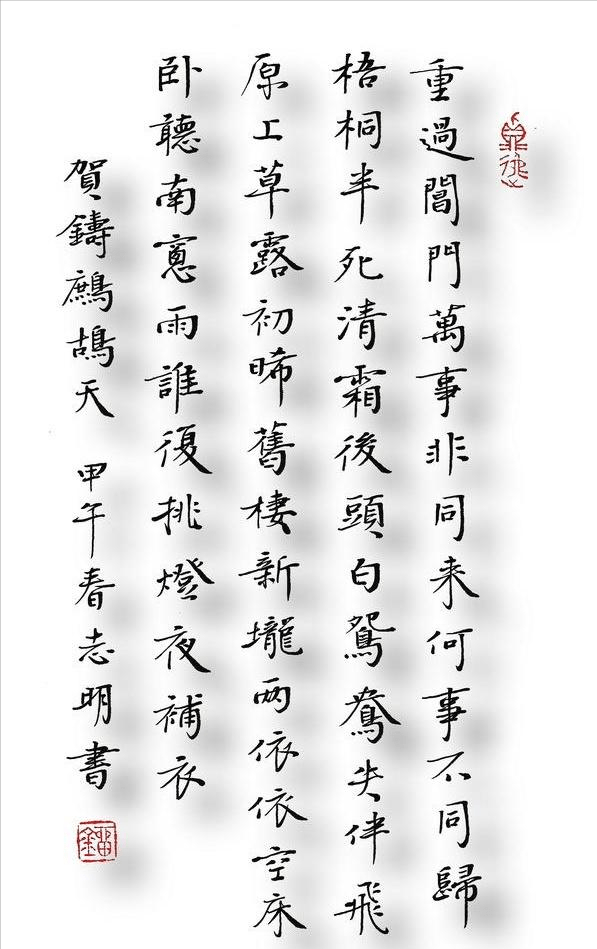 重過閶門萬事非同来何事不同歸
梧桐半死清霜後頭白鴛鴦失伴飛
原上草露初晞舊棲新壠両依依空床
卧聽南窻雨誰復挑燈夜補衣
賀鑄鷓鴣天 甲午春志明書